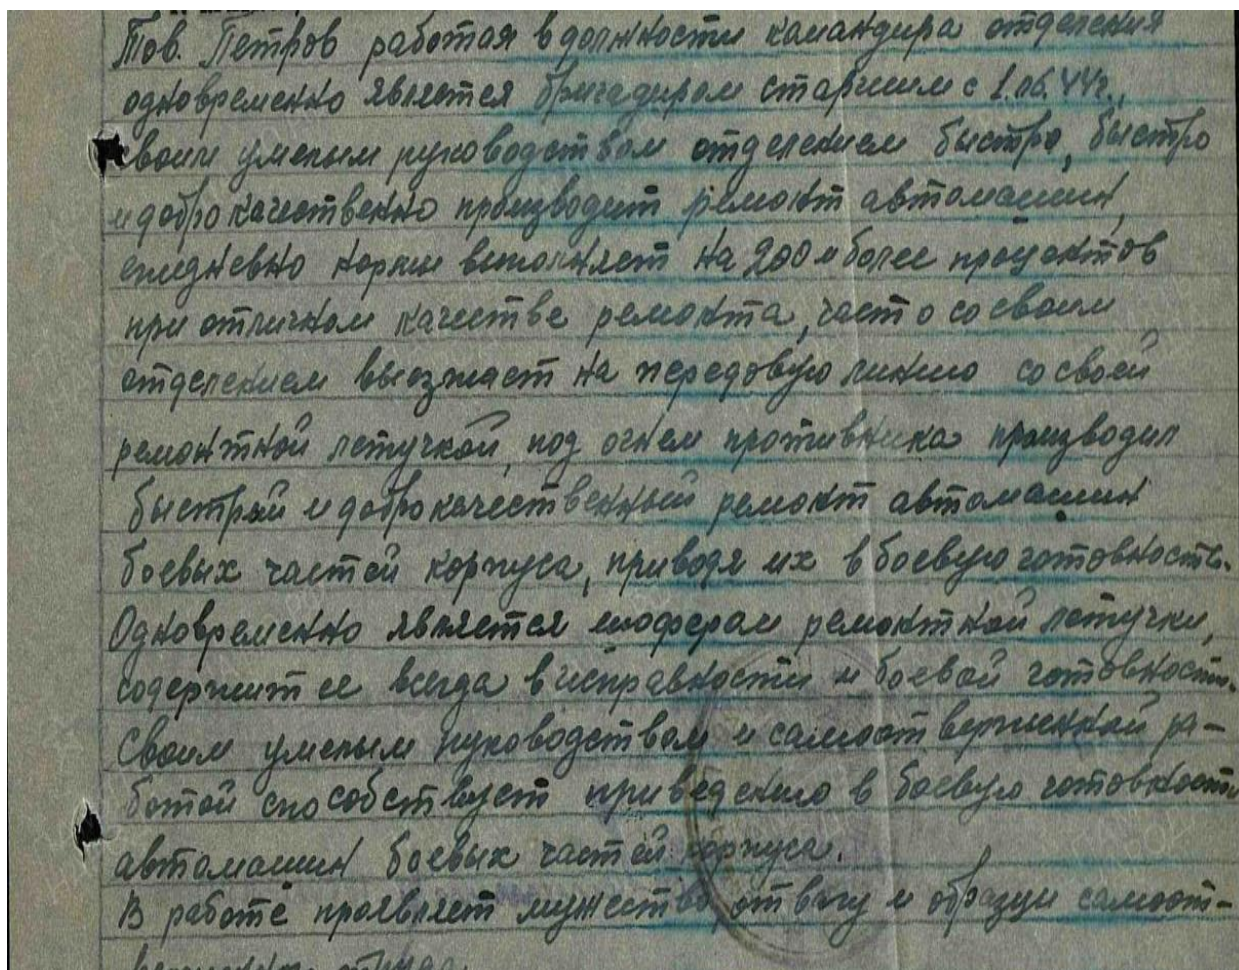 Тов. Петров работая в должности командира отделения
одновременно является бригадиром старшим с 1.06.44г.,
своим умелым руководством отделением быстро, быстро
и доброкачественно производит ремонт автомашин,
ежедневно нормы выполняет на 200 и более процентов
при отличном качестве ремонта, часто со своим
отделением выезжает на передовую линию со своей
ремонтной летучкой, под огнем противника производил
быстрый и доброкачественный ремонт автомашин
боевых частей корпуса, приводя их в боевую готовность.
Одновременно является шофером ремонтной летучки,
содержит ее всегда в исправности и боевой готовности.
Своим умелым руководством и самоотверженной ра-
ботой способствует приведению в боевую готовность
автомашин боевых частей корпуса.
В работе проявляет мужество, отвагу и образцы самоот-